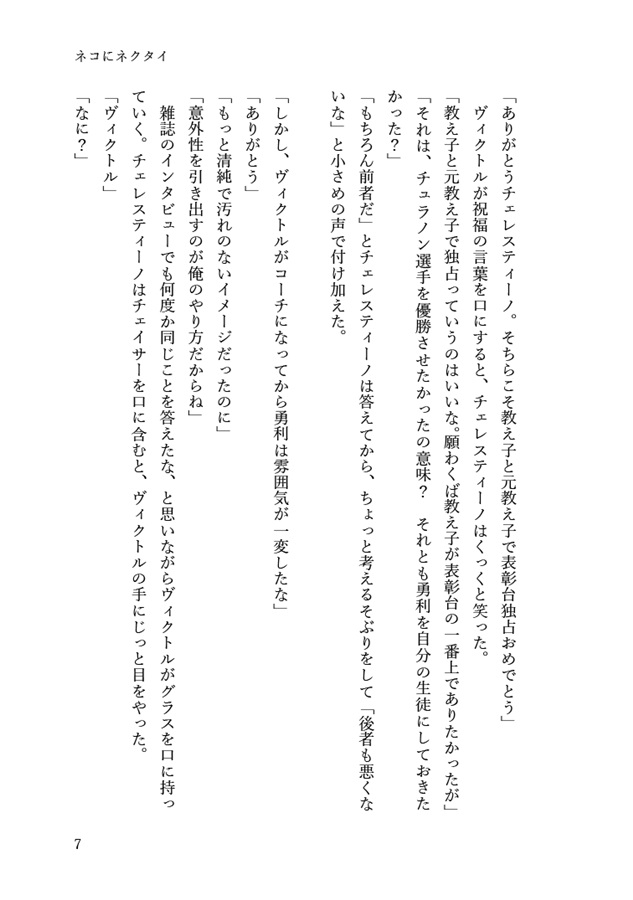 ネコにネクタイ
「ありがとうチェレスティーノ。そちらこそ教え子と元教え子で表彰台独占おめでとう」
　ヴィクトルが祝福の言葉を口にすると、チェレスティーノはくっくと笑った。
「教え子と元教え子で独占っていうのはいいな。願わくば教え子が表彰台の一番上でありたかったが」
「それは、チュラノン選手を優勝させたかったの意味？　それとも勇利を自分の生徒にしておきた
かった？」
「もちろん前者だ」とチェレスティーノは答えてから、ちょっと考えるそぶりをして「後者も悪くな
いな」と小さめの声で付け加えた。
「しかし、ヴィクトルがコーチになってから勇利は雰囲気が一変したな」
「ありがとう」
「もっと清純で汚れのないイメージだったのに」
「意外性を引き出すのが俺のやり方だからね」
　雑誌のインタビューでも何度か同じことを答えたな、と思いながらヴィクトルがグラスを口に持っ
ていく。チェレスティーノはチェイサーを口に含むと、ヴィクトルの手にじっと目をやった。
「ヴィクトル」
「なに？」
7